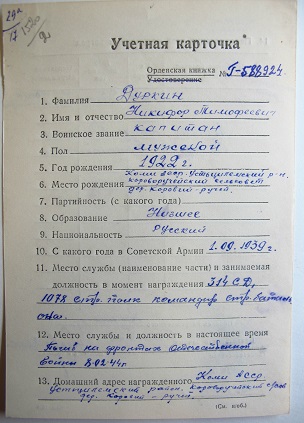 Учетная карточка
Орденская книжка
Удостоверение № Г-588924
1. Фамилия Дуркин
2. Имя и отчество Никифор Тимофеевич
3. Воинское звание капитан
4. Пол мужской
5. Год рождения 1922 г.
Коми АССР. Устьцилемский р-н.
6. Место рождения Короворучейский сельсовет
дер. Коровий-ручей.
7. Партийность (с какого года)
8. Образование Низшее
9. Национальность Русский
10. С какого года в Советской Армии 1.09.1939 г.
11. Место службы (наименование части) и занимаемая
должность в момент награждения 314 С.Д.
1078 стр. полк командир стр. баталь
она.
12. Место службы и должность в настоящее время
Погиб на фронтах Отечественной
Войны 8.02.44 г.
13. Домашний адрес награжденного Коми АССР.
Устьцилемский район. Короворучейский с/сов
дер. Коровий-ручей.
(См. на об.)